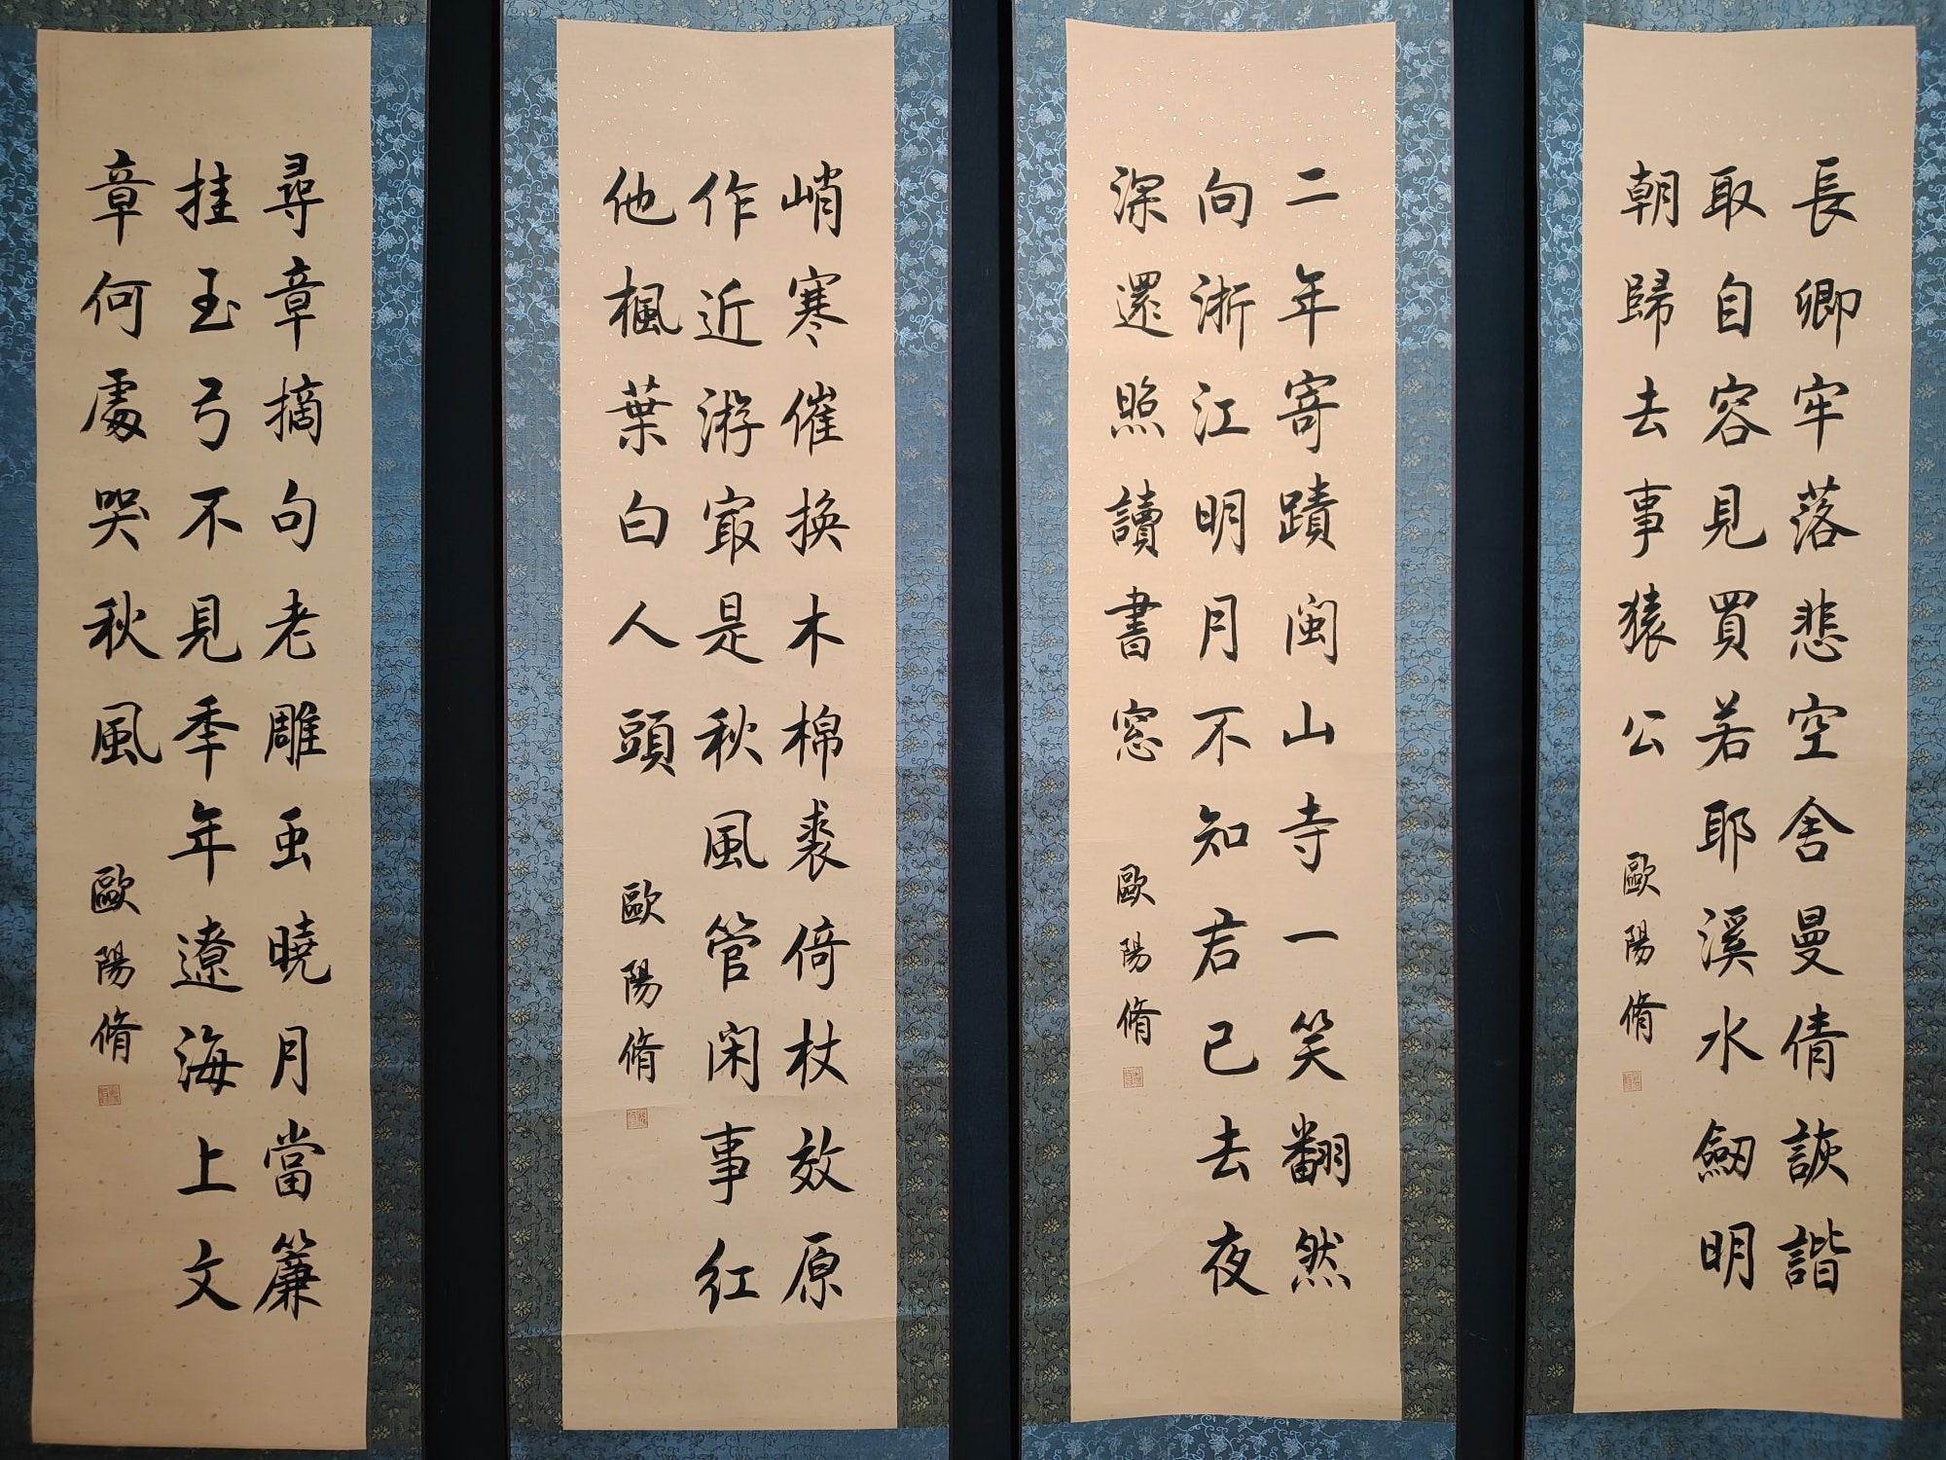 長卿牢落悲空舍曼倩詼諧
取自容見買若耶溪水劒明
朝歸去事猿公
歐陽脩
二年寄蹟閩山寺一笑翻然
向浙江明月不知君已去夜
深還照讀書窓
歐陽脩
峭寒催換木棉裘倚杖效原
作近游冣是秋風管闲事紅
他楓葉白人頭
歐陽脩
尋章摘句老雕虫曉月當簾
挂玉弓不見季年遼海上文
章何處哭秋風
歐陽脩